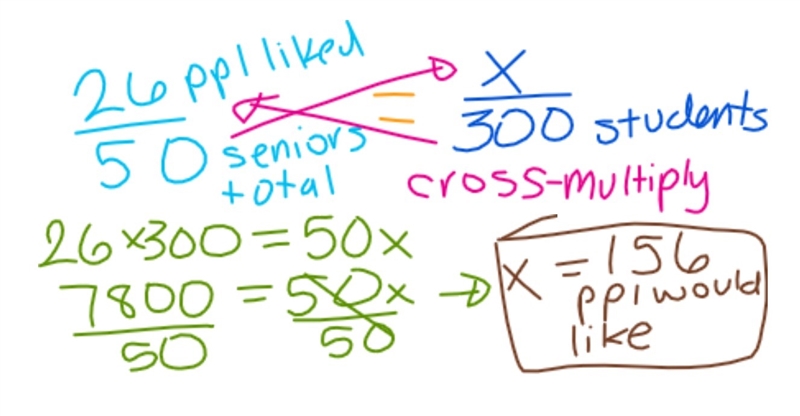 26 ppl liked
50 seniors total
=
x
300 students
cross-multiply
26×300 = 50x
7800 = 50x
50 50
→ x = 156
ppl would
like